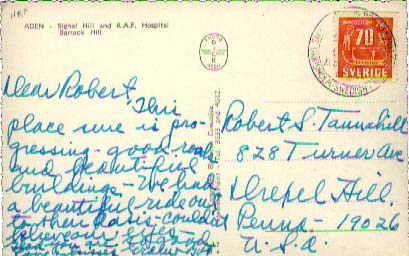 ADEN - Signal Hill and R.A.F. Hospital
Barrack Hill.
70
SVERIGE
Dear Robert,
This
place sure is pro-
gressing - good roads
and beautiful
buildings - We had
a beautiful ride out
to their Oasis - couldn't
believe our eyes -
Robert S. Tannahill
828 Turner Ave
Drexel Hill.
Penna - 19026
U.S.A.